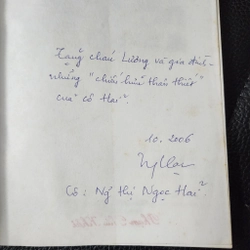 Tặng cháu Lương và gia đình
những "chiến hữu thân thiết"
của cô Hai²
10. 2006
Cô: Ng² thị Ngọc Hai².